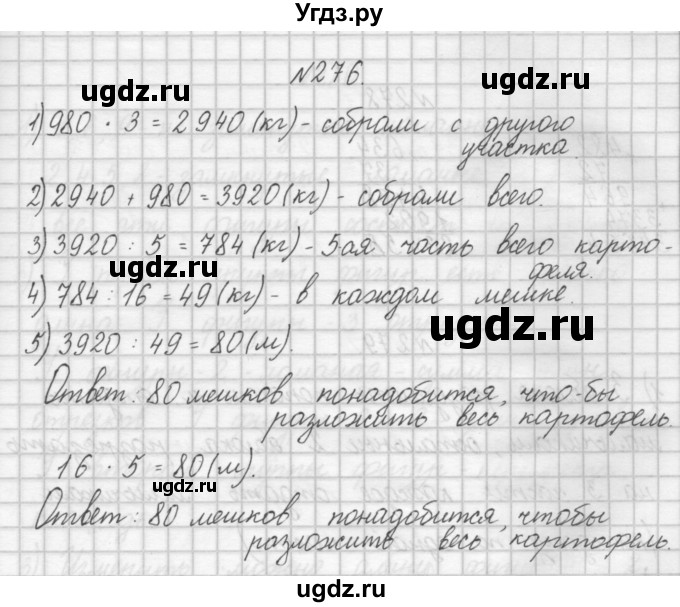 Угдз.ру
№276.
ugdz.ru ugdz.ru
1) 980 · 3 = 2 940 (кг) - собрали с другого
участка.
2) 2940 + 980 = 3920 (кг) - собрали всего.
3) 3920 : 5 = 784 (кг) - 5-ая часть всего карто-
феля.
ugdz.ru
4) 784 : 16 = 49 (кг) - в каждом мешке.
ugdz.ru
5) 3920 : 49 = 80 (м).
Ответ: 80 мешков понадобится, что-бы
разложить весь картофель.
16 · 5 = 80 (м).
ugdz.ru
Ответ: 80 мешков понадобится, чтобы
разложить весь картофель.
ugdz.ru
ugdz.ru